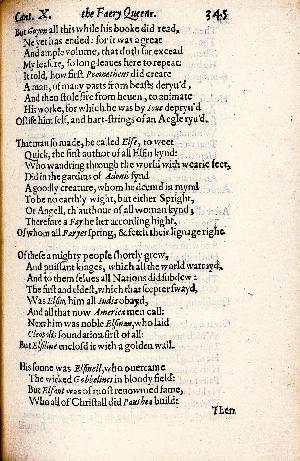 Cant. X. the Faery Queene. 345
But Guyon all this while his booke did read,
Ne yet has ended: for it was a great
And ample volume, that doth far excead
My leasure, so long leaues here to repeat:
It told, how first Prometheus did create
A man, of many parts from beasts deryu'd,
And then stole fire from heuen, to animate
His worke, for which he was by Ioue depryu'd
Of life him self, and hart-strings of an Aegle ryu'd.
That man so made, he called Elfe, to weet
Quick, the first author of all Elfin kynd:
Who wandring through the world with wearie feet,
Did in the gardins of Adonis fynd
A goodly creature, whom he deemd in mynd
To be no earthly wight, but either Spright,
Or Angell, th'authour of all woman kynd;
Therefore a Fay he her according hight,
Of whom all Faryes spring, & fetch their lignage right.
Of these a mighty people shortly grew,
And puissant kinges, which all the world warrayd,
And to them selues all Nations did subdew:
The first and eldest, which that scepter swayd,
Was Elfin; him all India obayd,
And all that now America men call:
Next him was noble Elfinan, who laid
Cleopolis foundation first of all:
But Elfiline enclosd it with a golden wall.
His sonne was Elfinell, who ouercame
The wicked Gobbelines in bloody field:
But Elfant was of most renowmed fame,
Who all of Christall did Panthea build:
Then